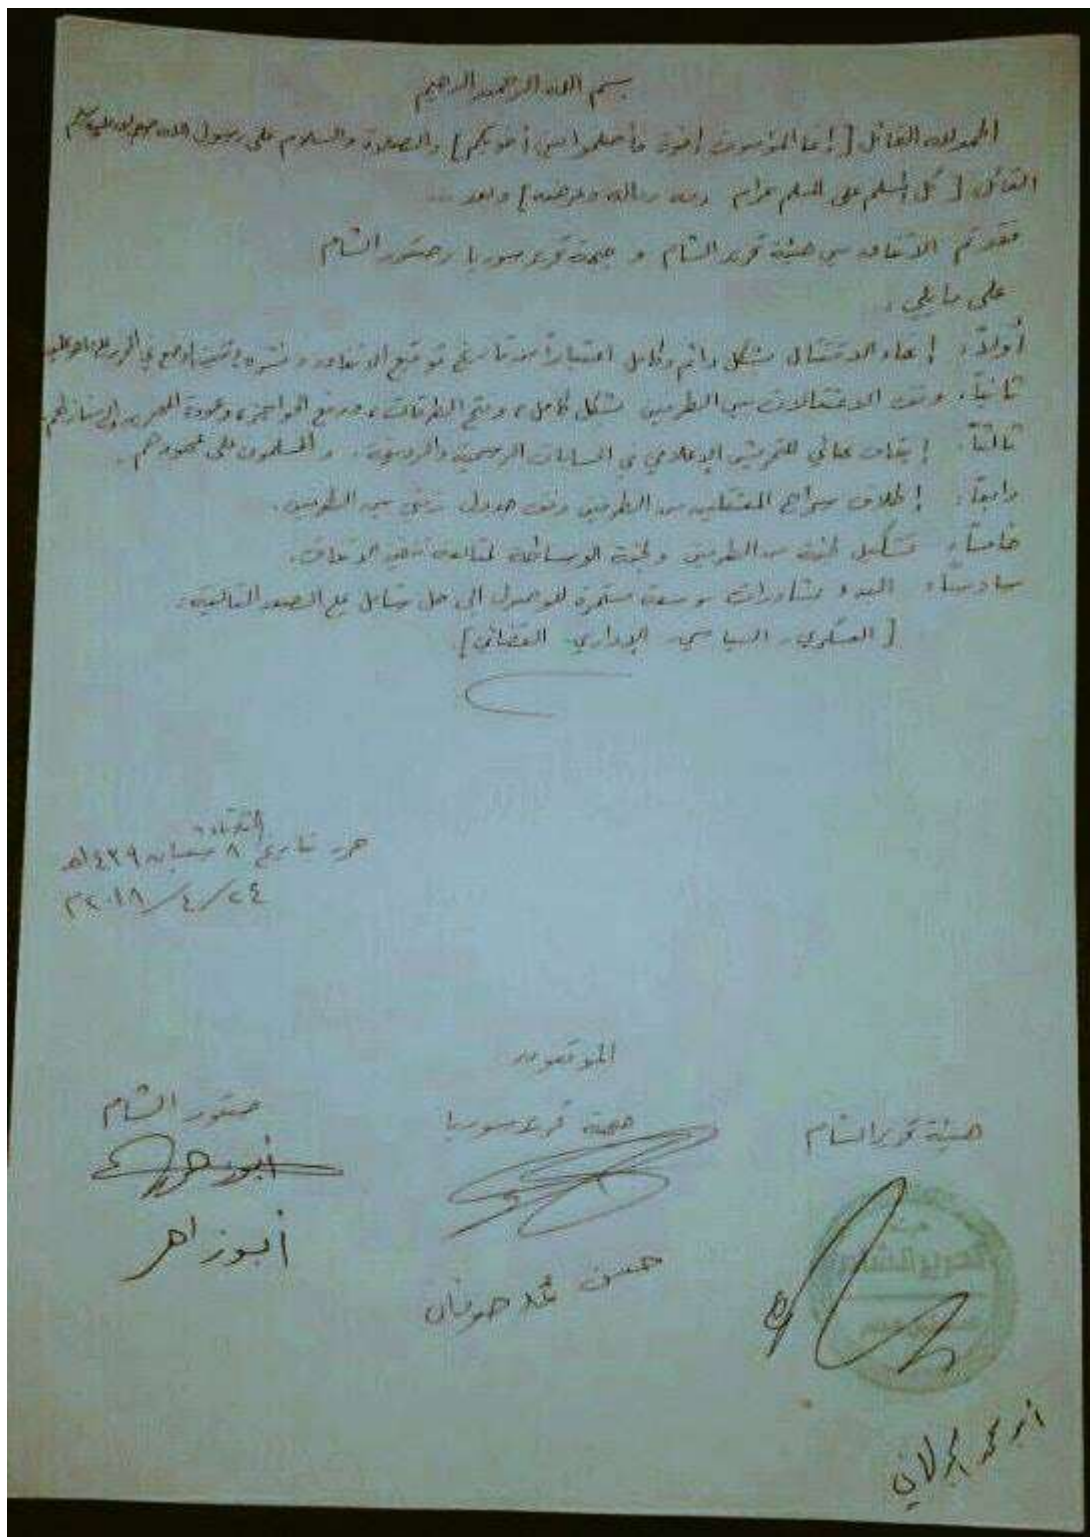 بسم الله الرحمن الرحيم
الحمد لله القائل [إنما المؤمنون إخوة فأصلحوا بين أخويكم] والصلاة والسلام على رسول الله صلى الله عليه وسلم
القائل [كل المسلم على المسلم حرام دمه وماله وعرضه] وبعد ...
فقد تم الاتفاق بين هيئة تحرير الشام و جبهة تحرير سوريا وصقور الشام
على ما يلي :
أولاً: إنهاء الاقتتال بشكل دائم وكامل اعتباراً من تاريخ توقيع الاتفاق و نشره
ثانياً: وقف الاعتقالات بين الطرفين بشكل كامل، وفتح الطرقات، ورفع الحواجز، وعودة
ثالثاً: إيقاف نهائي للتحريش الإعلامي في الحسابات الرسمية والرديفة.
رابعاً: إطلاق سراح المعتقلين من الطرفين وفق جدول زمني بين الطرفين.
خامساً: تشكيل لجنة من الطرفين ولجنة الوساطة لمتابعة تنفيذ الاتفاق.
سادساً: البدء بمشاورات موسعة مستمرة للوصول الى حل شامل مع الصعد التالية:
[العسكري - السياسي - الإداري القضائي]
الثلاثاء
حرر بتاريخ ٨ شعبان ١٤٣٩هـ
٢٤/٤/٢٠١٨م
الموقعون
هيئة تحرير الشام
جبهة تحرير سوريا
صقور الشام
أبو زاهر
حسن محمد صوفان
أبو محمد الجولاني